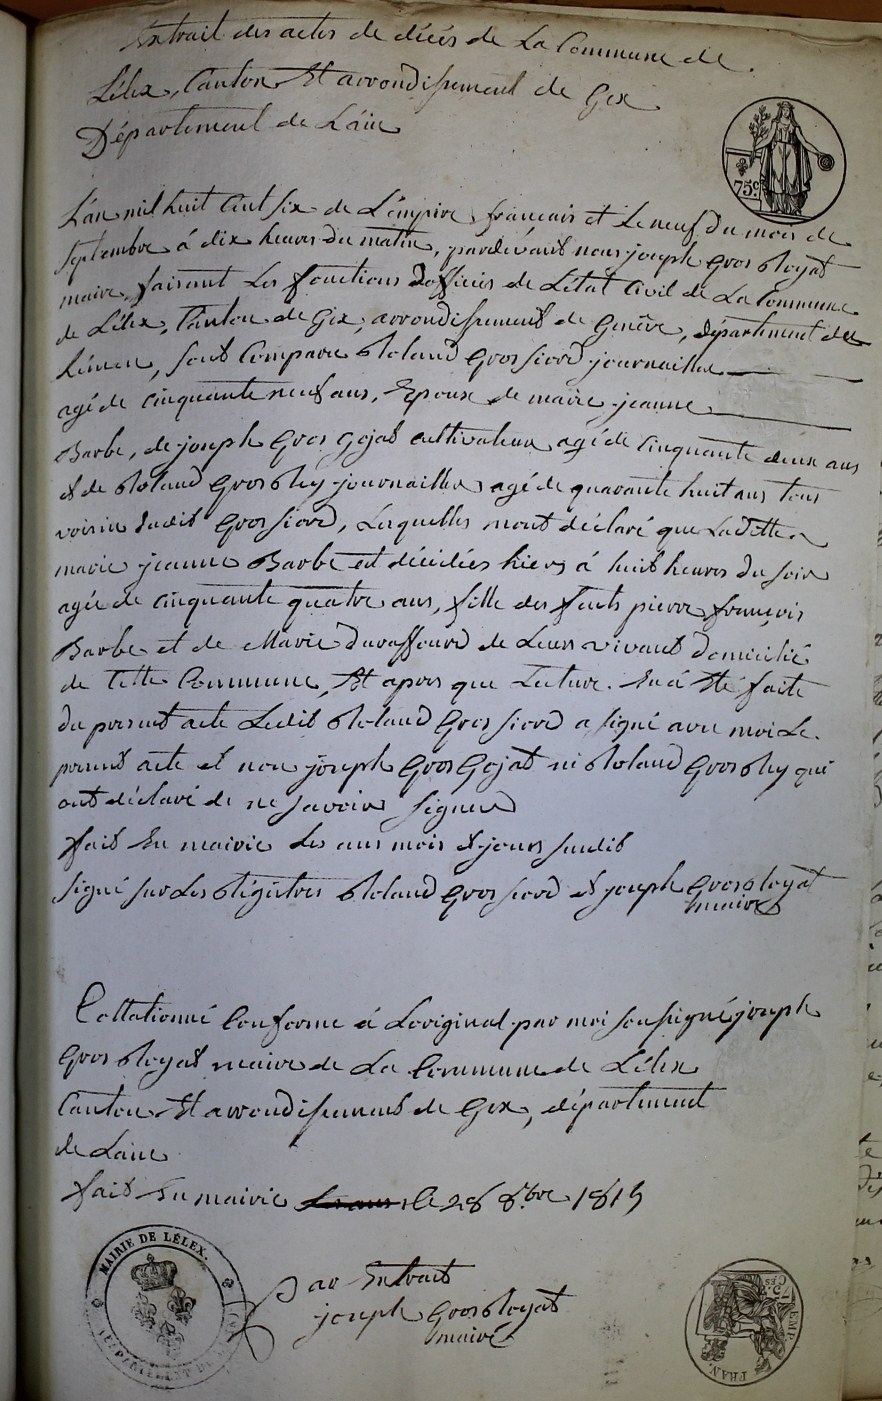 Extrait des actes de décés de La Commune de
Lélex, Canton Et arrondissement de Gex
Département de L'ain
75 c
L'an mil huit Cent six de L'empire français et Le neuf du mois de
septembre á dix heures du matin, pardevant nous joseph Gros Royat
maire, faisant Les fonctions d'officier de L'état Civil de La Commune
de Lélex, Canton de Gex, arrondissement de Genêve, département du
Léman, sont Comparu Roland Grosfiord journaillier
agé de cinquante neuf ans, Epoux de marie jeanne
Barbe, de joseph Gros Gojat cultivateur agé de Cinquante deux ans
et de Roland Gros Rey journaillier agé de quarante huit ans tous
voisin dudit Grosfiord, Lesquelles mont déclaré que Laditte
marie jeanne Barbe est décédées hiers á huit heures du soir
agée de cinquante quatre ans, fille des feuts pierre françois
Barbe et de Marie Duraffourd de Leurs vivant domicilié
de Cette Commune, Et apres que Lecture En á Eté faite
du present acte Ledit Roland Grosfiord a signé avec moi Le
present acte et non joseph Gros Gojat ni Roland Gros Rey qui
ont déclaré de ne savoir signer
fait En mairie Les ans mois et jours susdit
signé sur Les Régistres Roland Grosfiord et joseph Gros Royat
maire
Collationné Conforme á L'original par moi soussigné joseph
Gros Royat maire de La Commune de Lélex
Canton Et arrondissement de Gex, département
de L'ain
fait En mairie Les ans le 28 8bre 1815
par Extrait
joseph Gros Royat
maire
MAIRIE DE LÉLEX.
DÉPARTEMENT DE
EMP. FRAN.